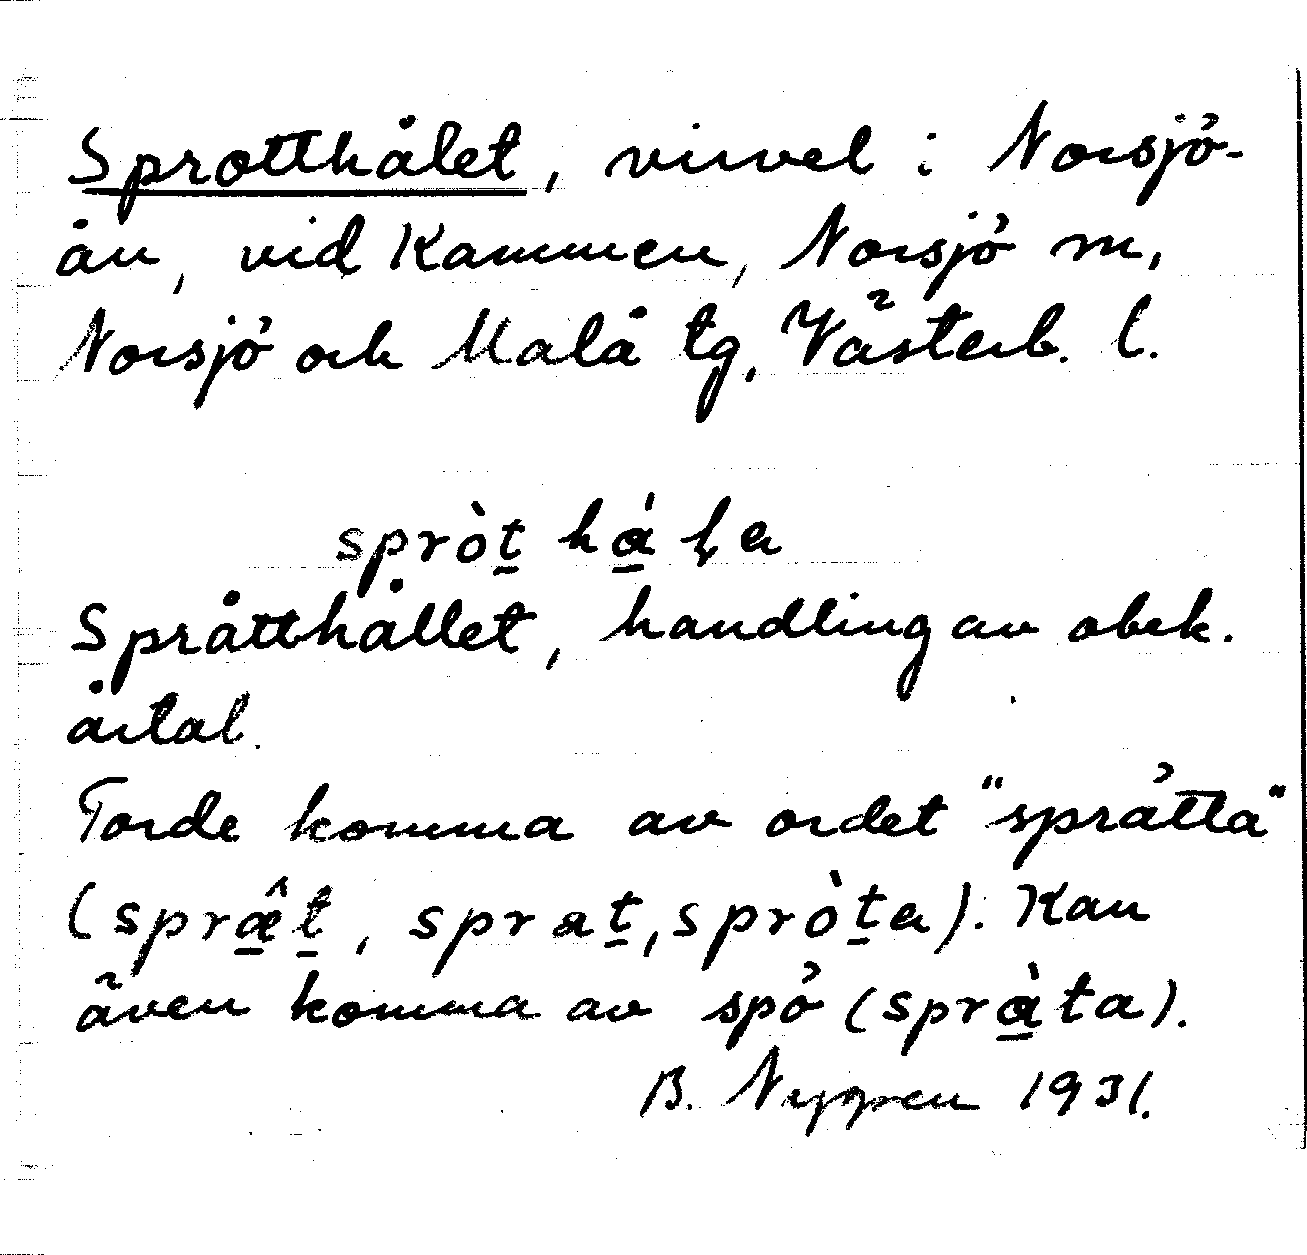 Sprotthålet, virvel i Norsjö-
ån, vid Kammen, Norsjö sn,
Norsjö och Malå tg, Västerb. l.
spròt̲ há̲ḷa
Språtthållet, handling av obek.
årtal.
Torde komma av ordet "sprätta"
(spræ̲̂t̲, sprat̲, spròt̲a). Kan
även komma av spö (sprà̲ta).
B. Nygren 1931.